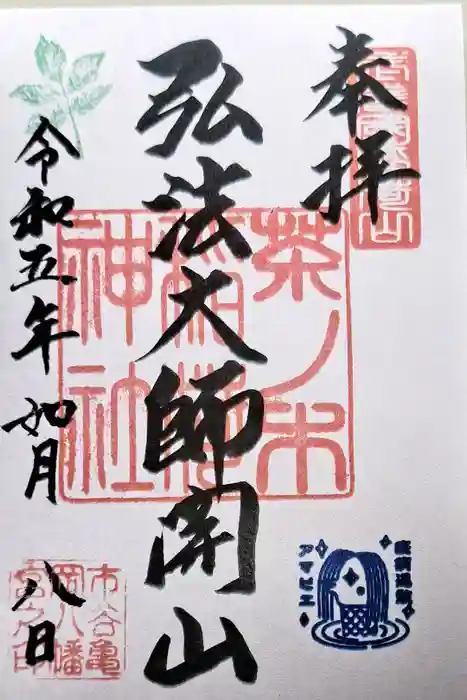 奉拝
弘法大師開山
茶ノ木
稲荷
神社
令和五年 如月
八日
市谷亀
岡八幡
宮之印
アマビエ